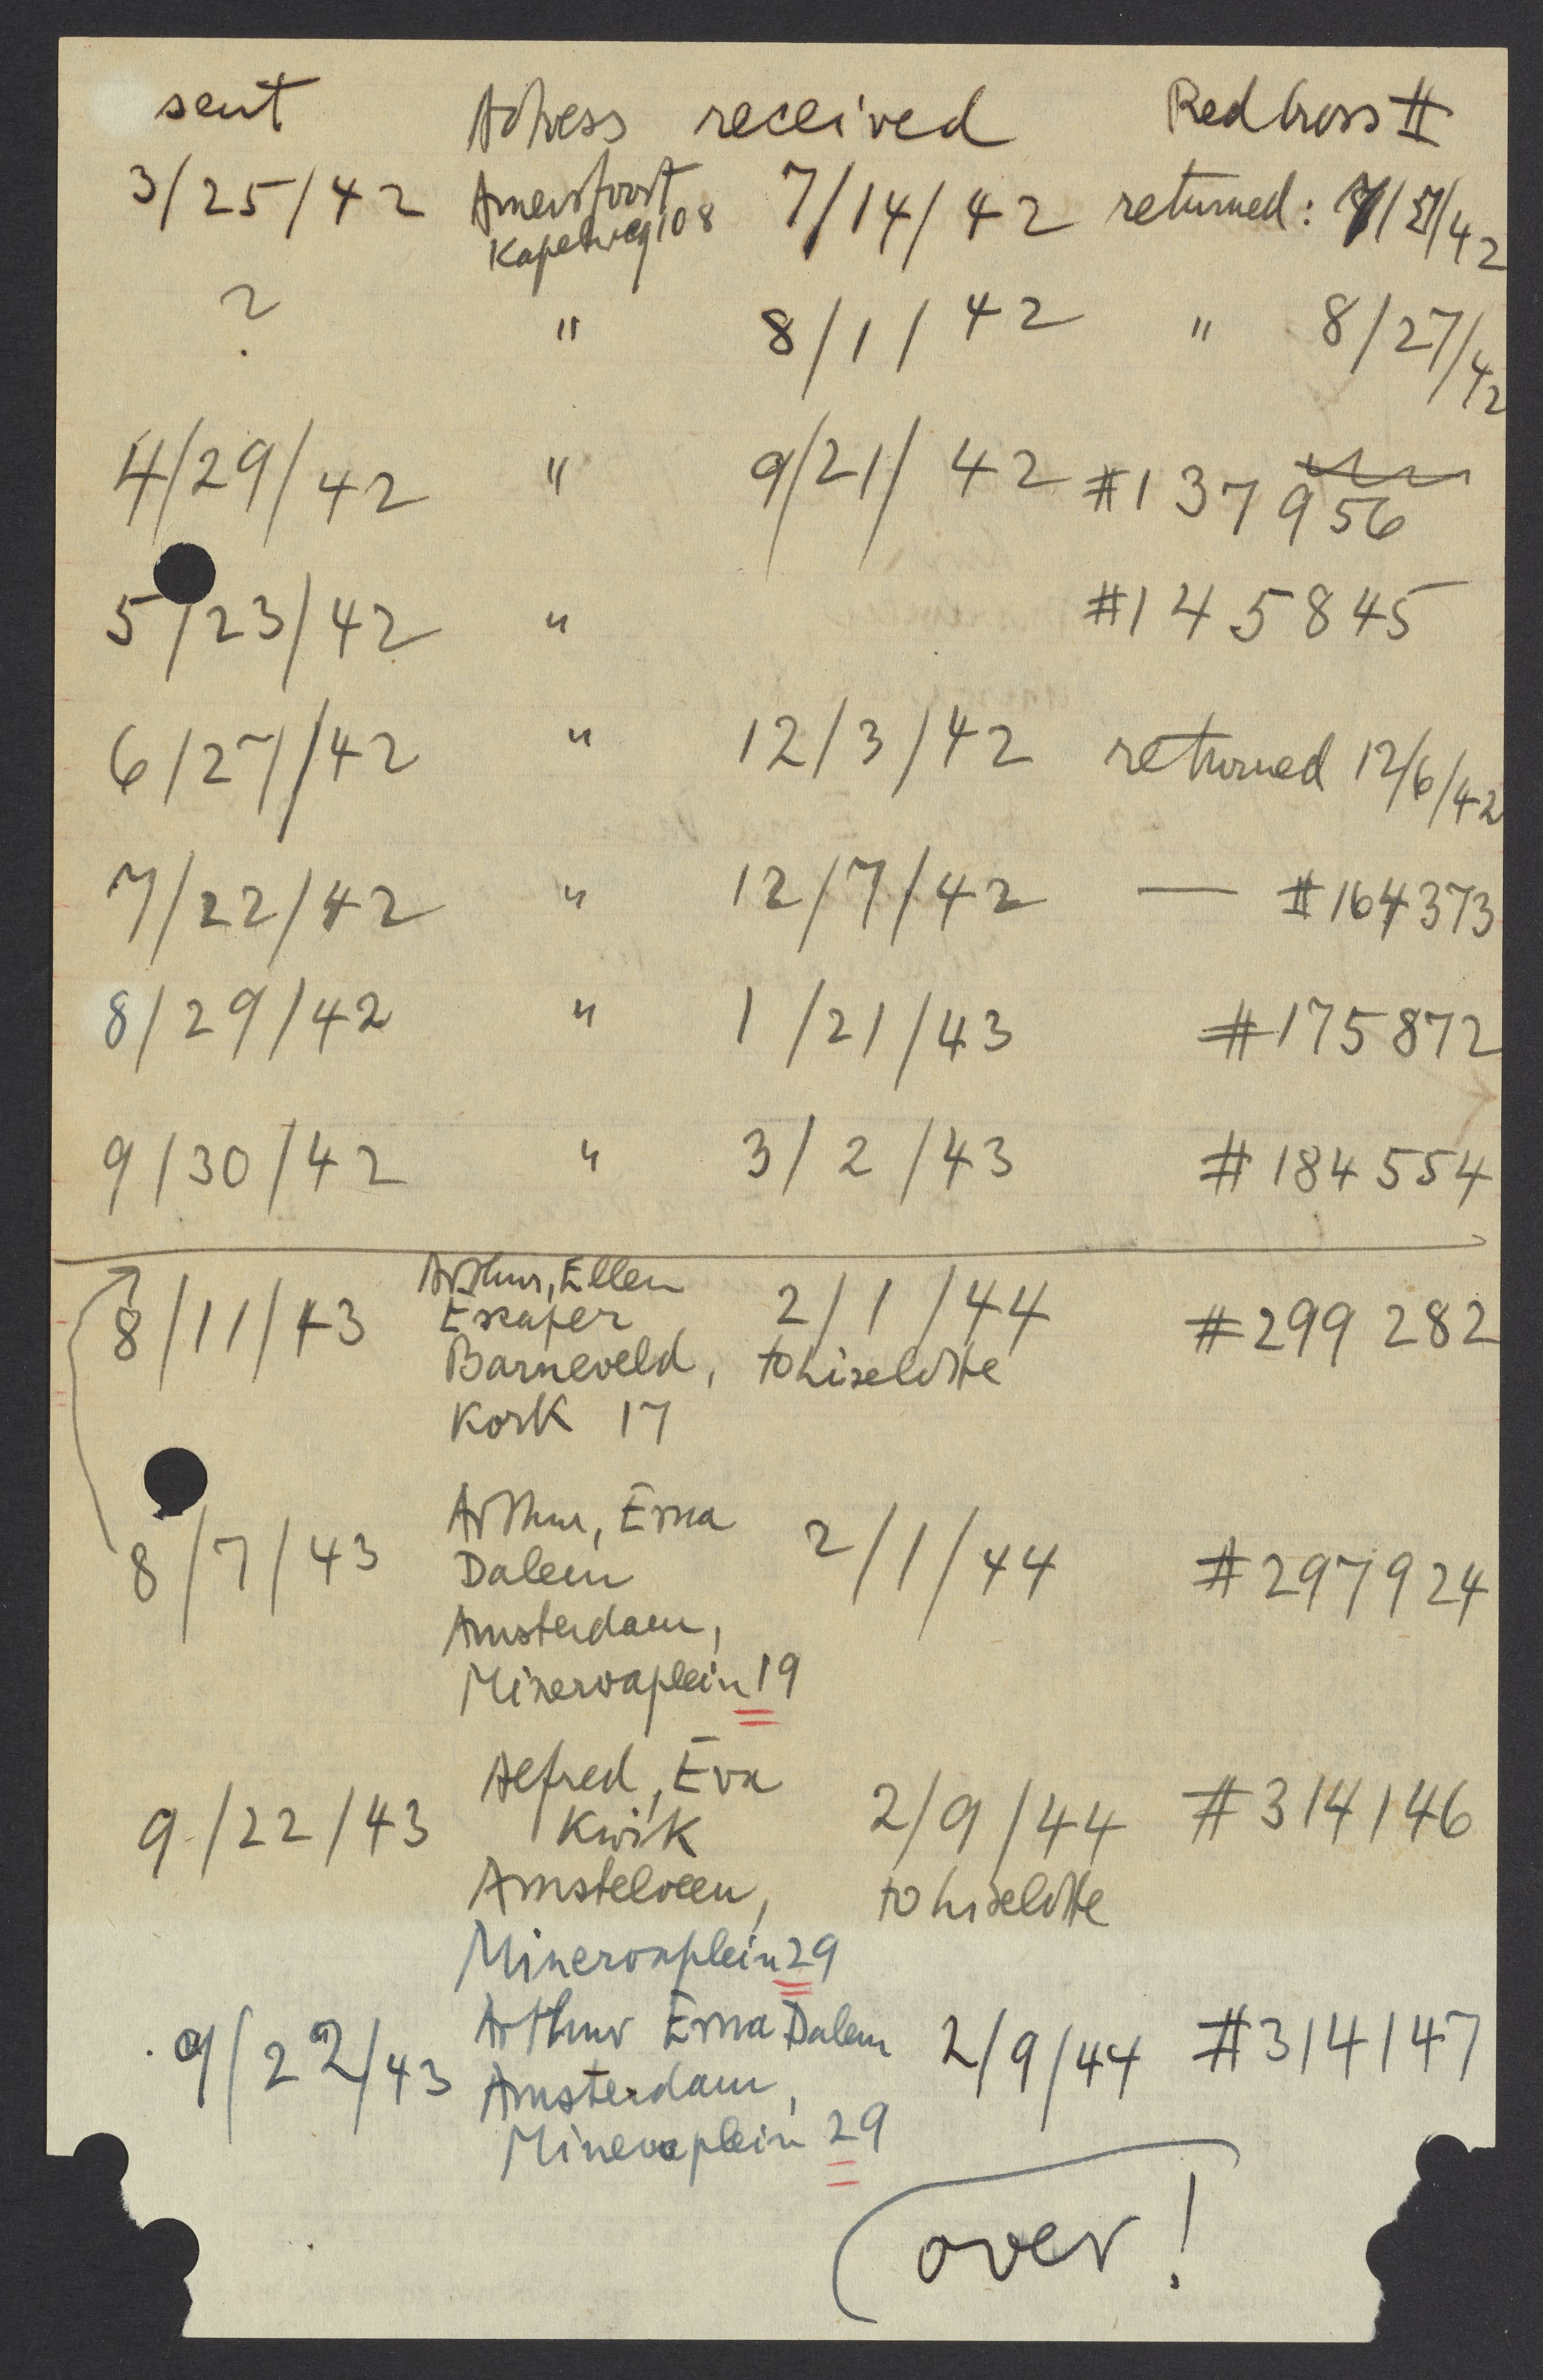 sent Adress received Red Cross #
3/25/42 Amersfoort 7/14/42 returned: /42
Kapelweg 108
? " 8/1/42 " 8/27/42
4/29/42 " 9/21/42 #137956
5/23/42 " #145845
6/27/42 " 12/3/42 returned 12/6/42
7/22/42 " 12/7/42 — #164373
8/29/42 " 1/21/43 #175872
9/30/42 " 3/2/43 #184554
8/11/43 Arthur, Ellen 2/1/44 #299282
Barneveld, to Liselotte
17
8/7/43 Arthur, Erna 2/1/44 #297924
Dalem
Amsterdam,
Minervaplein 19
9/22/43 Alfred, Eva 2/9/44 #314146
Kwik
Amstelveen, to Liselotte
Minervaplein 29
9/22/43 Arthur Erna Dalem 2/9/44 #314147
Amsterdam,
Minervaplein 29
over!